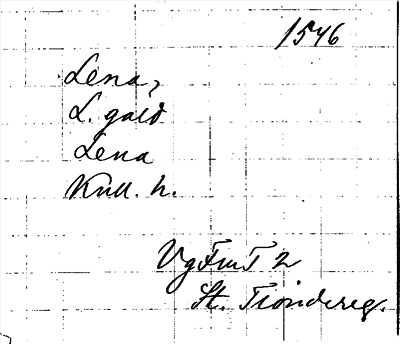 1546
Lena,
L. gård
Lena
Kull. h.
VgFmT 2
St. Tiondereg.